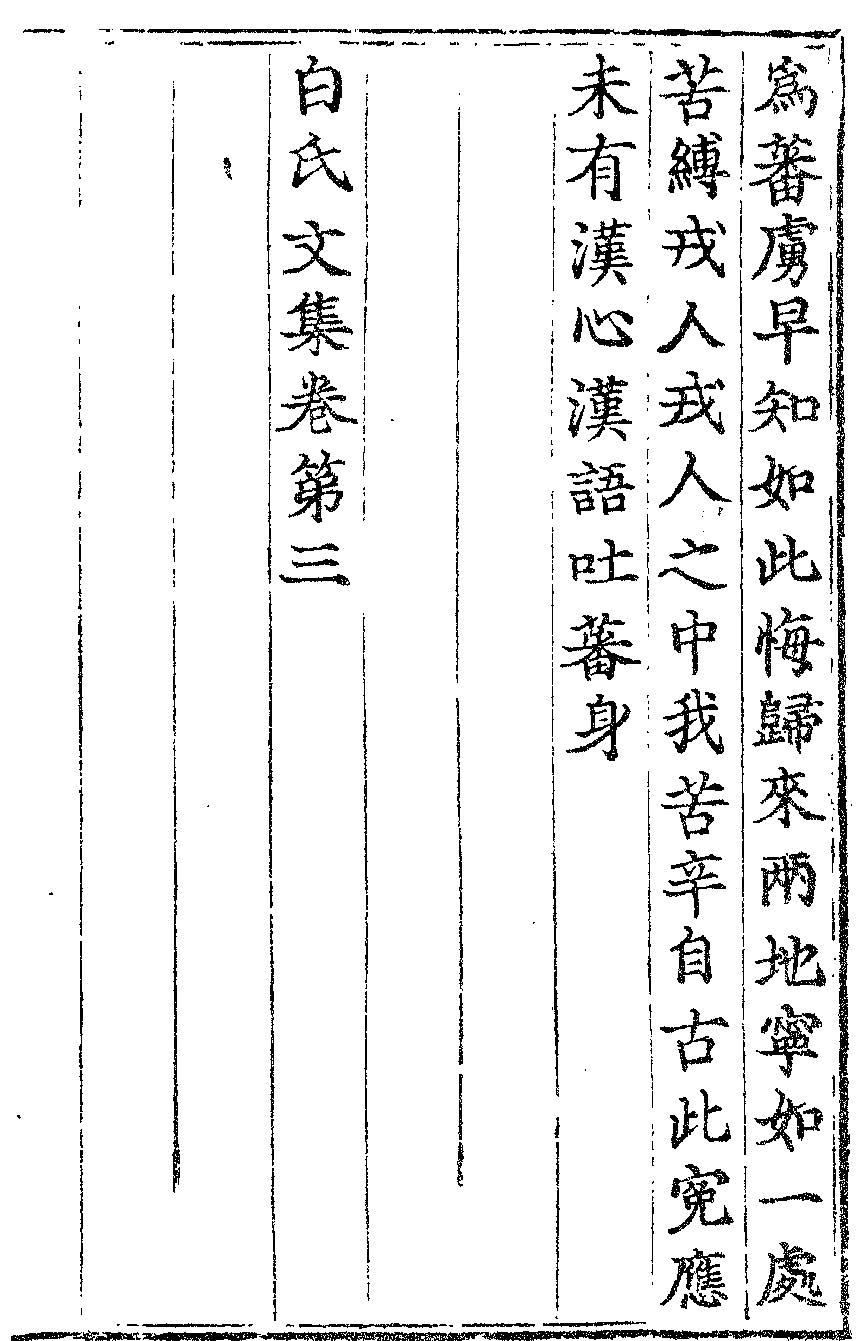 為蕃虜早知如此悔歸來兩地寧如一處
苦縛戎人戎人之中我苦辛自古此寃應
未有漢心漢語吐蕃身
白氏文集卷第三